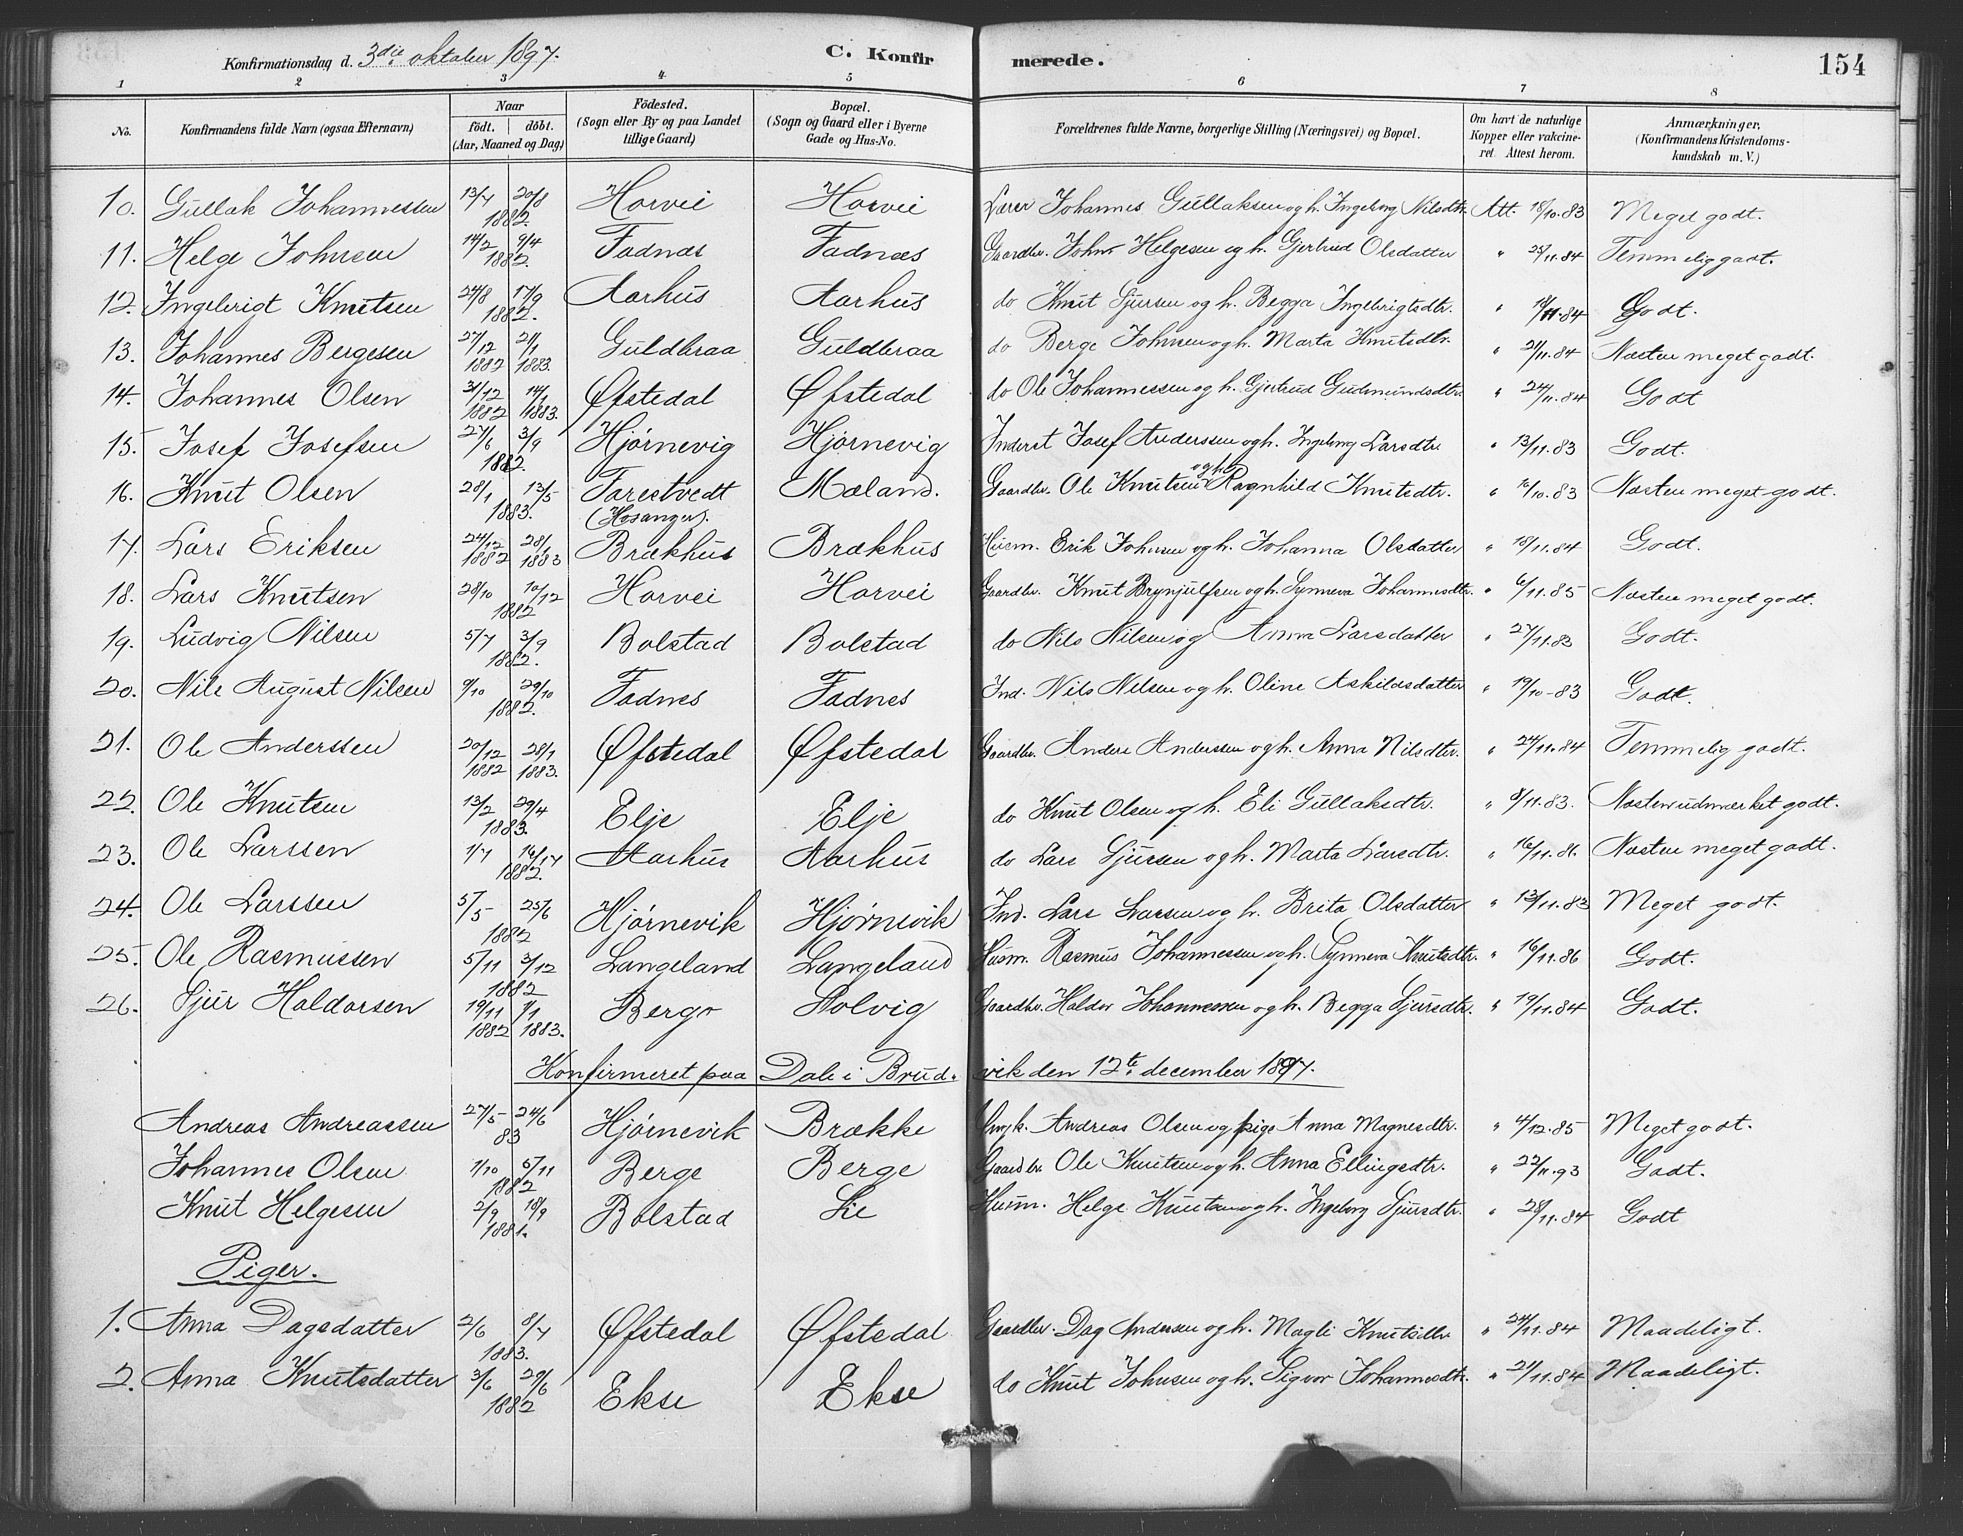 Konfirmationsdag d. 3die oktober 1897. C. Konfirmerede. 154
1 2 3 4 5 6 7 8
No. | Konfirmandens fulde Navn (ogsaa Efternavn) | Naar født. | døbt. (Aar, Maaned og Dag) | Födested. (Sogn eller By og paa Landet tillige Gaard) | Bopæl. (Sogn og Gaard eller i Byerne Gade og Hus-No. | Forældrenes fulde Navne, borgerlige Stilling (Næringsvei) og Bopæl. | Om havt de naturlige Kopper eller vakcineret. Attest herom. | Anmærkninger. (Konfirmandens Kristendomskundskab m. V.)
10. Gullak Johannessen 13/7 20/8 1882. Horvei Horvei Lærer Johannes Gullaksen og h. Ingeborg Nilsdtr. Att. 18/10.83 Meget godt.
11. Helge Johnsen 14/2 9/4 1882. Fadnæs Fadnæs Gaardbr. John Helgesen og h. Gjertrud Olsdatter " 25/11.84 Temmelig godt.
12. Ingebrigt Knutsen 24/8 17/9 1882. Aarhus Aarhus do Knut Sjursen og h. Begga Ingebrigtsdtr. " 18/11.84 Godt.
13. Johannes Bergesen 27/12 1882 21/1 1883. Guldbraa Guldbraa do Berge Johnsen og h. Marta Knutsdtr. " 21/11.84 Næsten meget godt.
14. Johannes Olsen 31/12 1882 14/1 1883. Øfstedal Øfstedal do Ole Johannessen og h. Gjertrud Gudmundsdtr. " 24/11.84 Godt
15. Josef Josefsen 27/6 3/9 1882. Hjørnevig Hjørnevig Inderst Josef Anderssen og h. Ingeborg Larsdtr. " 13/11.83 Godt.
16. Knut Olsen 28/1 13/5 1883. Tarestvedt (Hosanger). Mæland. Gaardbr. Ole Knutsen og h. Ragnhild Knutsdtr. " 10/10.83 Næsten meget godt.
17. Lars Eriksen 24/12 1882 28/1 1883 Brækhus Brækhus Husm. Erik Johnsen og h. Johanna Olsdatter " 18/11.84 Godt.
18. Lars Knutsen 28/10 10/12 1882 Horvei Horvei Gaardbr. Knut Brynjulfsen og h. Synneva Johannesdtr. " 6/11.85 Næsten meget godt.
19. Ludvig Nilsen 5/7 3/9 1882. Bolstad Bolstad do Nils Nilsen og Anna Larsdatter " 27/11.83 Godt.
20. Nils August Nilsen 9/10 29/10 1882. Fadnes Fadnes Ind. Nils Nilsen og h. Oline Askildsdatter " 19/10-83 Godt.
21. Ole Anderssen 20/12 1882 28/1 1883. Øfstedal Øfstedal Gaardbr. Anders Andersen og h. Anna Nilsdtr. " 24/11.84 Temmelig godt.
22. Ole Knutsen 13/2 29/4 1883. Elje Elje do Knut Olsen og h. Eli Gullaksdtr. " 8/11.83. Næsten udmærket godt.
23. Ole Larssen 1/7 16/7 1882. Aarhus Aarhus do Lars Sjursen og h. Marta Larsdtr. " 16/11.86. Næsten meget godt.
24. Ole Larssen 5/5 25/6 1882 Hjørnevik Hjørnevik Ind. Lars Larsen og h. Brita Olsdatter " 13/11.83 Meget godt.
25. Ole Rasmussen 5/11 3/12 1882 Langeland Langeland Husm. Rasmus Johannessen og h. Synneva Knutsdtr. " 16/11.86 Godt.
26. Sjur Haldorsen 19/11 1882 1/1 1883. Berge Solvig Gaardbr. Haldor Johannessen og h. Begga Sjursdtr. " 19/11.84 Godt.
Konfirmeret paa Dale i Brudvik den 12te december 1897.
Andreas Andreassen 27/5 24/6 83 Hjørnevik Brække Ungk. Andreas Olsen og pige Anna Magnesdtr. " 4/12.85 Meget godt.
Johannes Olsen 1/10 5/11 1882 Berge Berge Gaardbr. Ole Knutsen og h. Anna Ellingsdtr. " 22/11.93 Godt.
Knut Helgesen 2/9 18/9 1881. Bolstad Lie Husm. Helge Knutsen og h. Ingeborg Sjursdtr. " 28/11.84 Godt
Piger.
1. Anna Dagsdatter 2/6 8/7 1883. Øfstedal Øfstedal Gaardbr. Dag Andersen og h. Magli Knutsdtr. " 24/11.84 Maadeligt.
2. Anna Knutsdatter 3/6 29/6 1882 Ekse Ekse do Knut Johnsen og h. Sigvor Johannesdtr. " 21/11.84 Maadeligt.